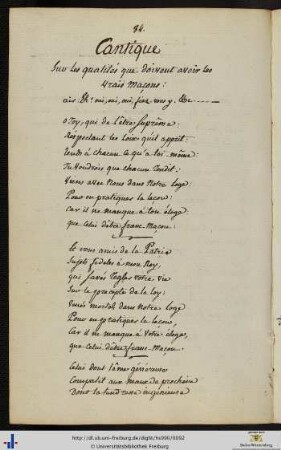 84.
Cantique
Sur les qualités que doivent avoir les
vrais maçons:
air. Et oui, oui, oui, fiez vous y. &c.
O Toy, qui de l'être Suprême
Respectant les Loix qu'il apprit,
rends à chacun ce qu'à toi même
Tu voudrois que chacun rendit:
viens avec Nous dans Notre Loge
Pour en pratiquer la leçon:
Car il ne manque à ton éloge
que Celui d'être franc-Maçon.
Et vous amis de la Patrie
Sujets fideles à mon Roy,
qui savés regler votre vie
Sur le precepte de la loy:
venés mortels dans Notre Loge
Pour en pratiquer la leçon,
Car il ne manque à votre éloge,
que Celui d'être franc-Maçon.
Celui dont l'âme généreuse
Compatit aux maux du prochain
Dont la tendresse ingenieuse
http://dl.ub.uni-freiburg.de/diglit/hs990/0092
© Universitätsbibliothek Freiburg
Baden-Württemberg